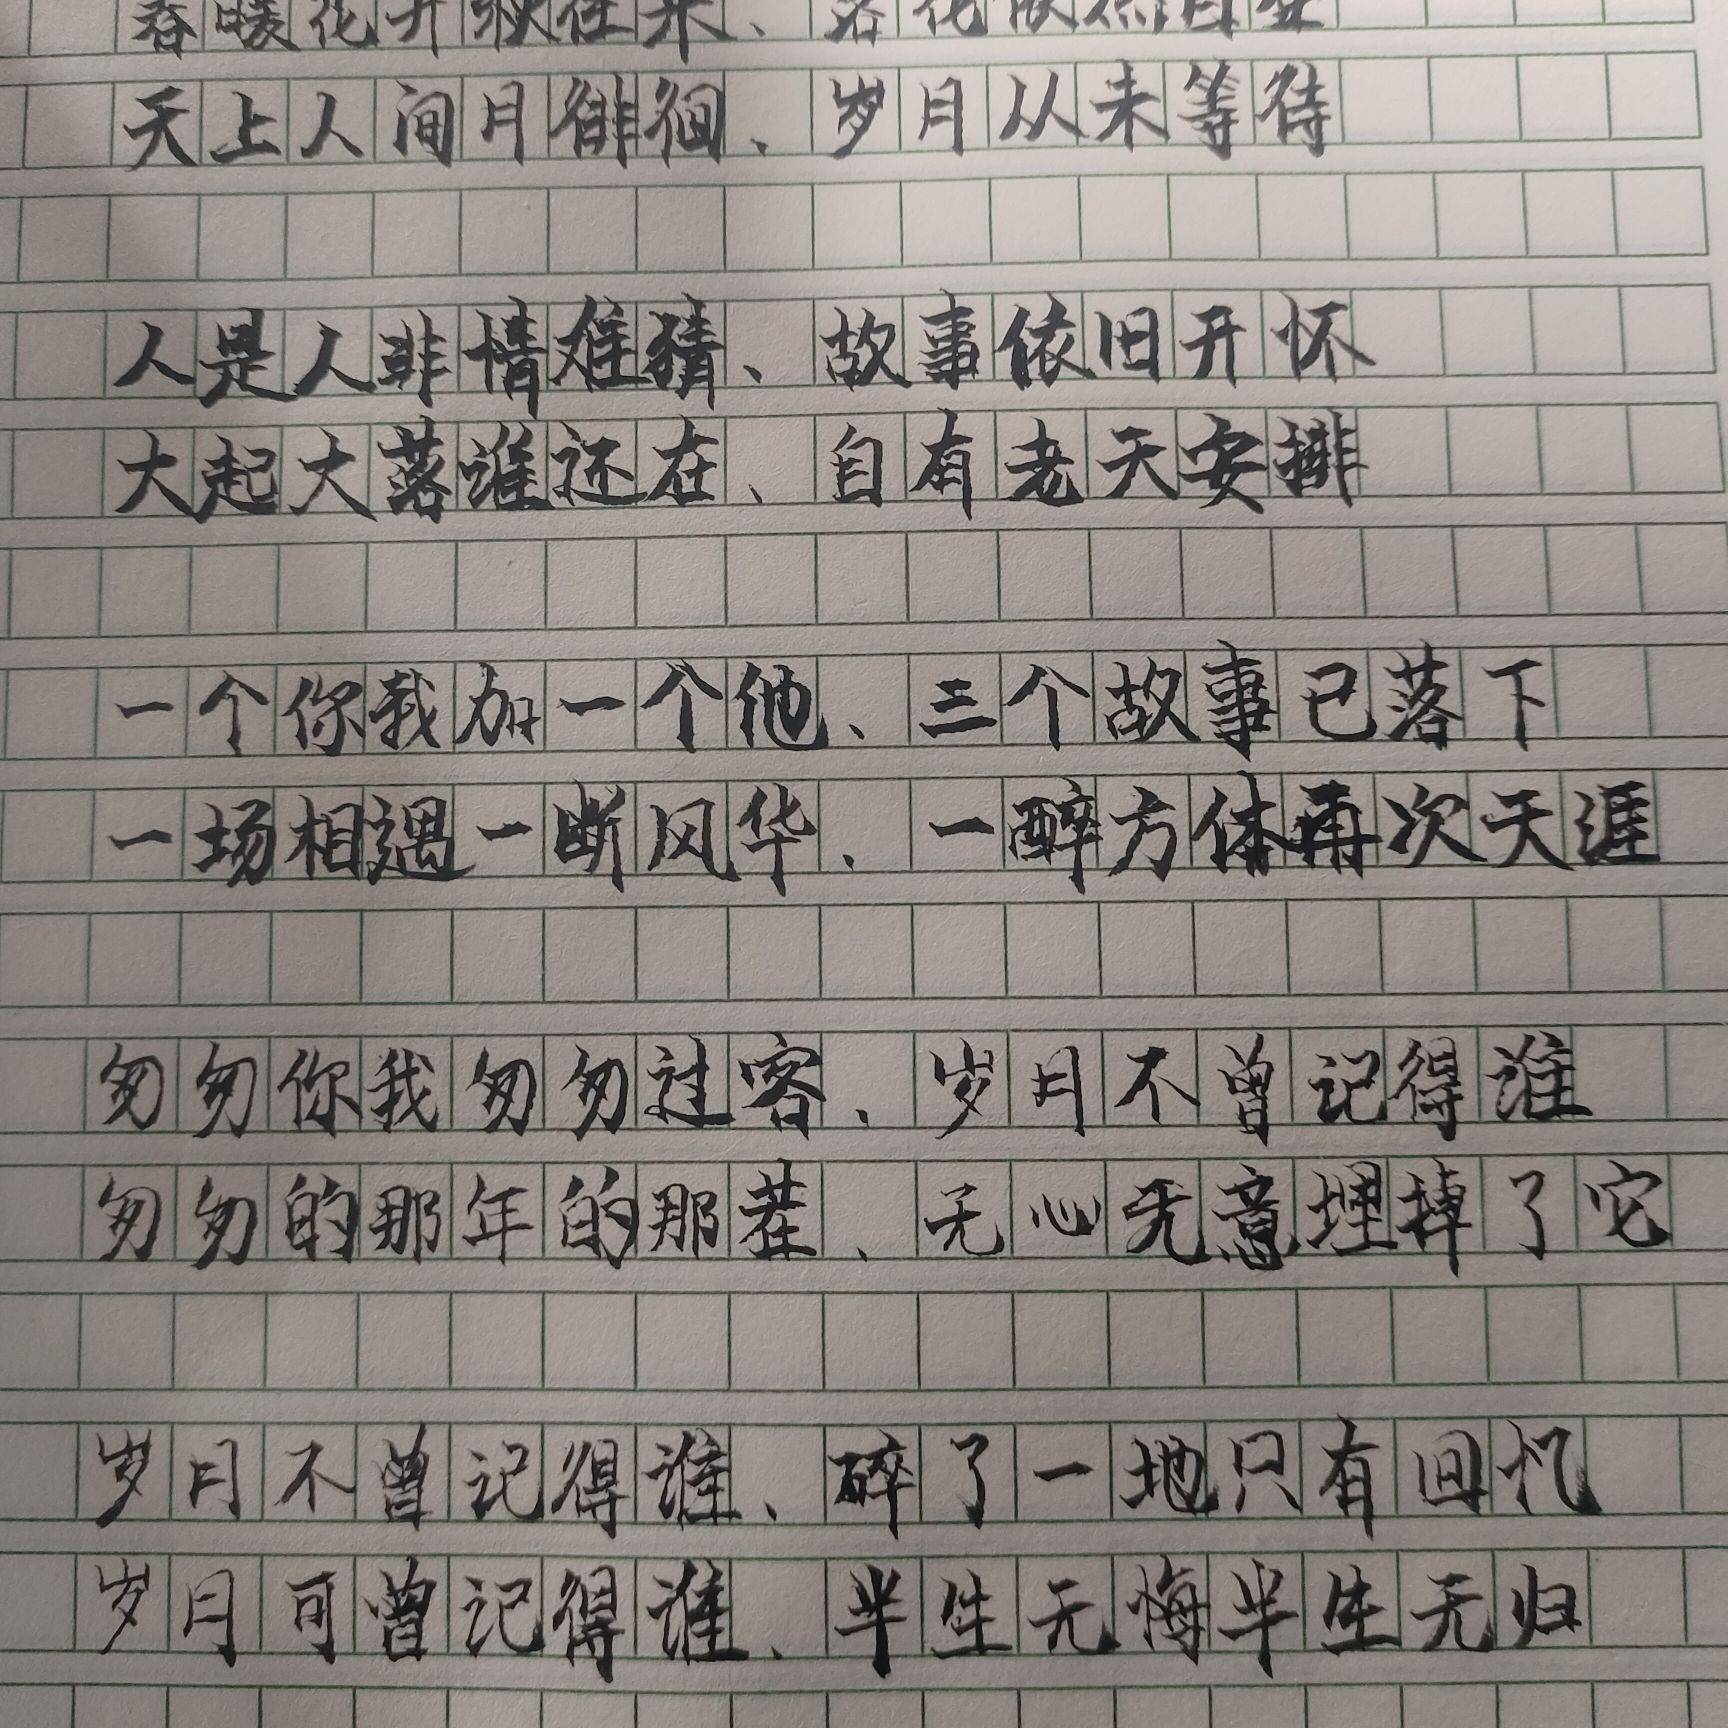 春暖花开秋往来、落花依然自在
天上人间月徘徊、岁月从未等待
人是人非情难猜、故事依旧开怀
大起大落谁还在、自有老天安排
一个你我加一个他、三个故事已落下
一场相遇一断风华、一醉方休再次天涯
匆匆你我匆匆过客、岁月不曾记得谁
匆匆的那年的那茬、无心无意埋掉了它
岁月不曾记得谁、碎了一地只有回忆
岁月可曾记得谁、半生无悔半生无归